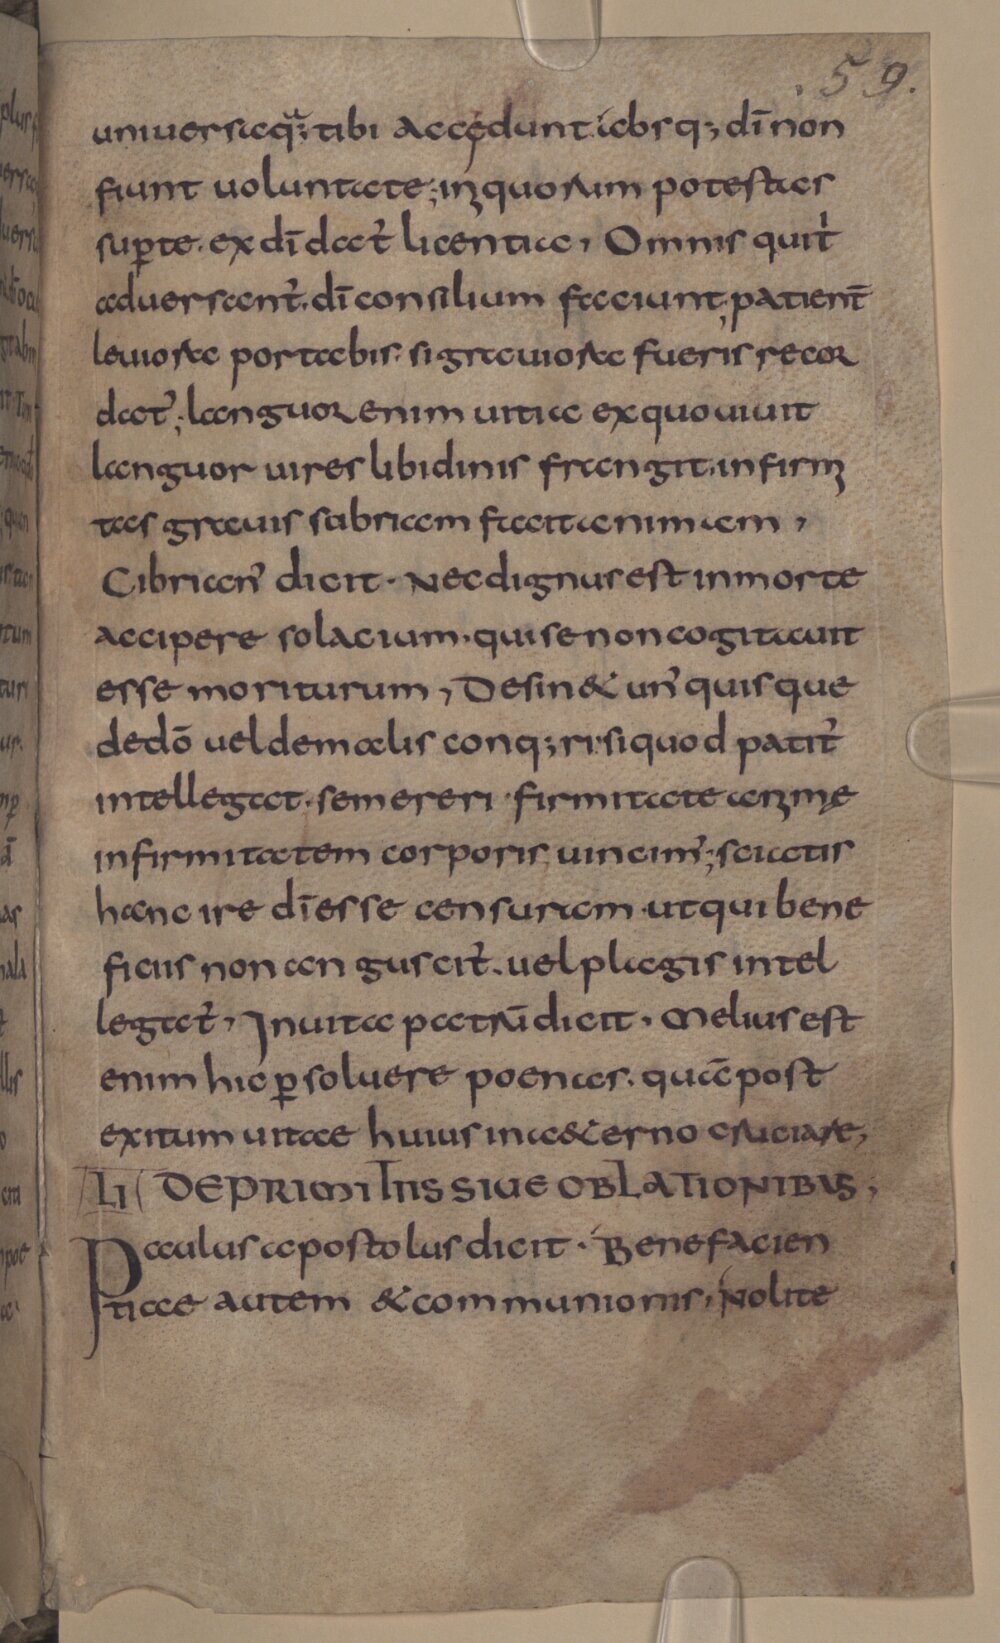 .59.
uniuersaq̄; tibi accędunt. absq; dī non
fiunt uoluntate; in quorum potestas
super te. ex dī dat̉ licentia, Omnis quit̉
aduersant̉. dī consilium faciunt; patient̄
leuiora portabis. si grauiora fueris recor
dat̉; languor enim uitia ex quo uiuit
languor uires libidinis frangit. infirmi
tas grauis sobriam facit animam,
Ciprian̉ dicit. Nec dignus est in morte
accipere solacium. qui se non cogitauit
esse moriturum, Desin& un̉ quisque
de dō uel de malis conq;ri. si quod patit̉
intellegat. se mereri. firmitate animę
infirmitatem corporis uincim̉; sciatis
hanc ire dī esse censuram. ut qui bene
ficiis non an guscit̉. uel plagis intel
legat̉, In uita patrū dicit, Melius est
enim hic p̱soluere poenas. quā post
exitum uitae huius in a&erno cruciare,
LI DE PRIMITIIS SIUE OBLATIONIBUS;
Paulus apostolus dicit. Benefacien
tiae autem & communionis, Nolite